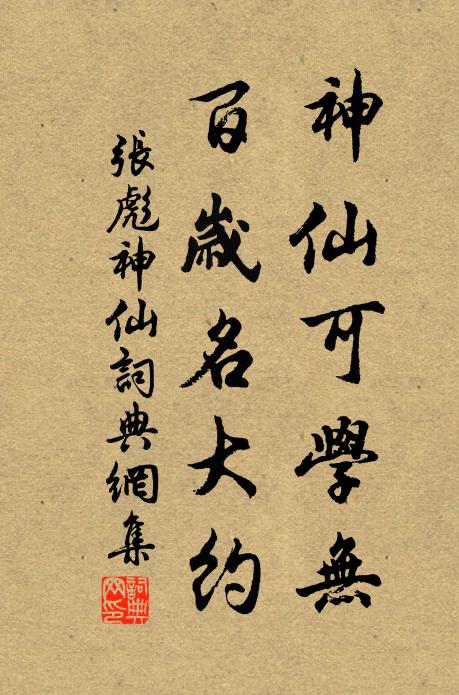 神仙可學無
百歲名大約
張彪神仙詞典網集
詞典網印